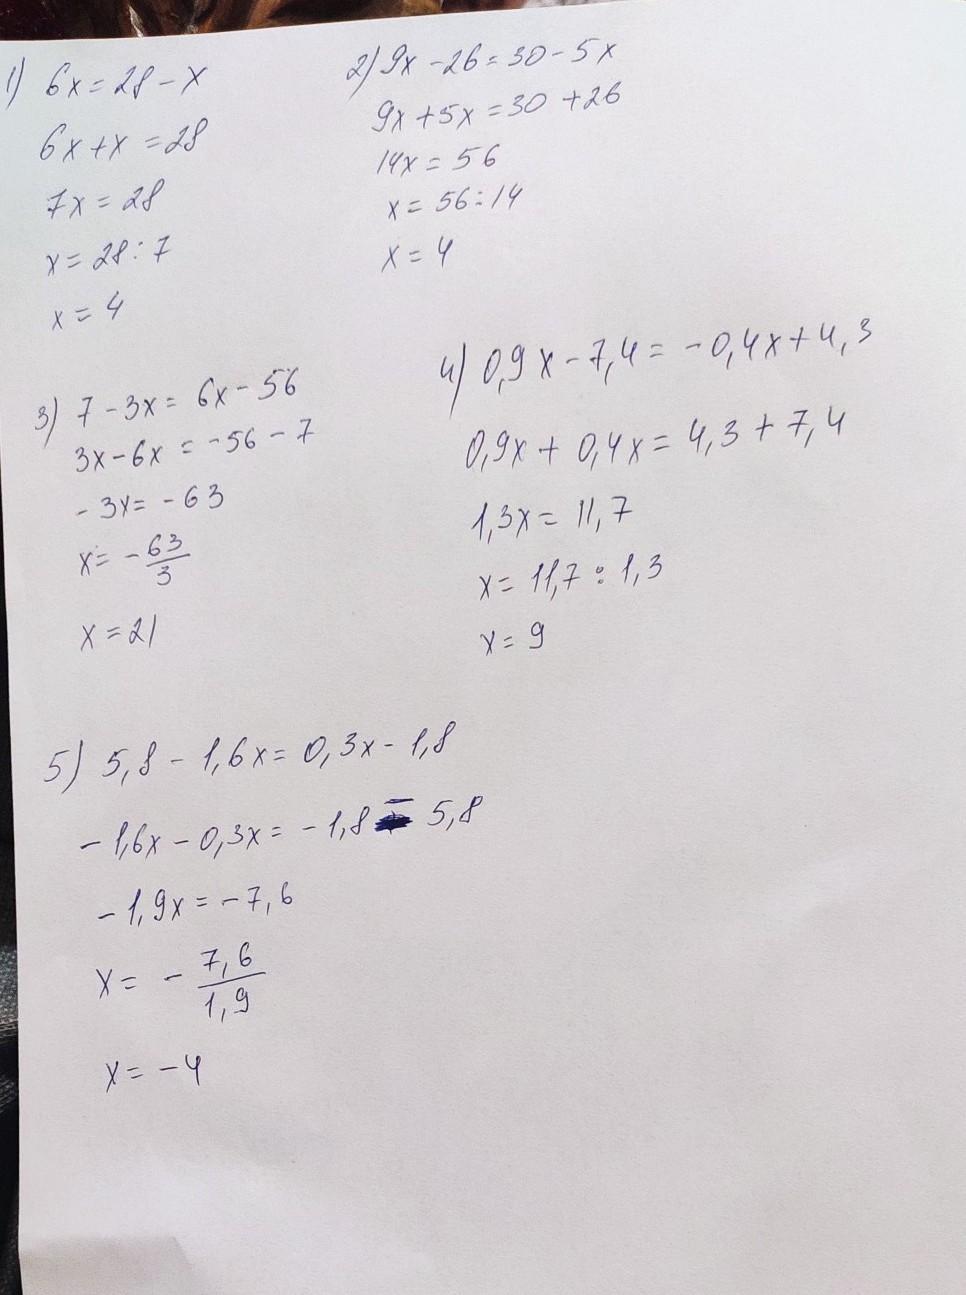 1) 6x = 28 - x
6x + x = 28
7x = 28
x = 28 : 7
x = 4
2) 9x - 26 = 30 - 5x
9x + 5x = 30 + 26
14x = 56
x = 56 : 14
x = 4
3) 7 - 3x = 6x - 56
3x - 6x = -56 - 7
- 3x = - 63
x = - 63/3
x = 21
4) 0,9x - 7,4 = - 0,4x + 4,3
0,9x + 0,4x = 4,3 + 7,4
1,3x = 11,7
x = 11,7 : 1,3
x = 9
5) 5,8 - 1,6x = 0,3x - 1,8
- 1,6x - 0,3x = - 1,8 - 5,8
- 1,9x = - 7,6
x = - 7,6/1,9
x = - 4